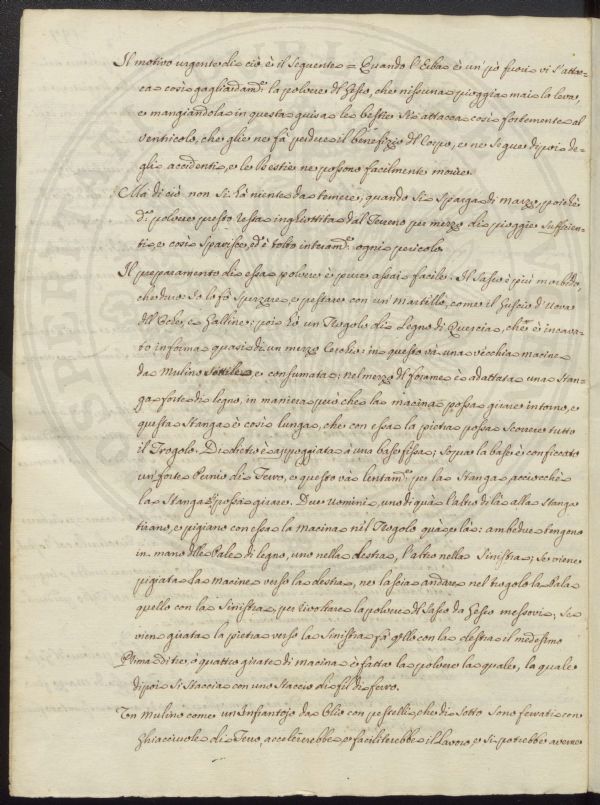 Il motivo urgente di ciò è il seguente = Quando l'Erba è un pò fuori vi s'attac-
ca così gagliardam.e la polvere del Gesso, che nissuna pioggia mai la leva,
e mangiandola in questa guisa le bestie si attacca così fortemente al
ventricolo, che glie ne fà perdere il benefizio del Corpo, e ne segue dipoi de-
gli accidenti, e le Bestie ne possono facilmente morire.
Mà di ciò non si hà niente da temere, quando si sparga di marzo, poichè
d.a polvere presto resta inghiottita dal Terreno per mezzo di pioggie sufficien-
ti, e così sparisce, ed è tolto interam.e ogni pericolo.
Il preparamento di essa polvere è pure assai facile: Il Sasso è più morbido,
che duro: Si lo fà spezzare, e pestare con un martillo, come il Guscio d'uova
dell'Oche, e Galline: poi hà un Trogolo di Legno di Quercia, che è incava-
to in forma quasi di un mezzo Cerchio: in questo và una vecchia macine
da Mulino sottile, e consumata: nel mezzo del forame è adattata una Stan-
ga forte di legno, in maniera però che la macina possa girare intorno, e
questa Stanga è così lunga, che con essa la pietra possa scorrere tutto
il Trogolo. Di dietro è appoggiata à una base fissa; sopra la base è conficcato
un forte Pernio di Ferro, e questo và lentam.e per la Stanga acciocchè
la Stanga possa girare. Due uomini, uno di quà l'altro di là alla stanga
tirano, e pigiano con essa la macina nel Trogolo quà e là: ambedue tengono
in mano delle Pale di legno, uno nella destra, l'altro nella Sinistra; Se viene
pigiata la macine verso la destra, ne lascia andare nel trogolo la Pala
quello con la Sinistra, per rivoltare la polvere del Sasso da Gesso messovi; Se
vien girata la pietra verso la Sinistra fà quello con la destra il medesimo
Prima di tre, ò quattro girate di macina è fatta la polvere la quale, la quale
dipoi si staccia con uno Staccio di fil di ferro.
Un Mulino come un Infrantojo da Olio con pestelli, che di Sotto sono ferrati con
Ghiacciuole di Ferro, accelererebbe e faciliterebbe il Lavoro, e si potrebbe avere